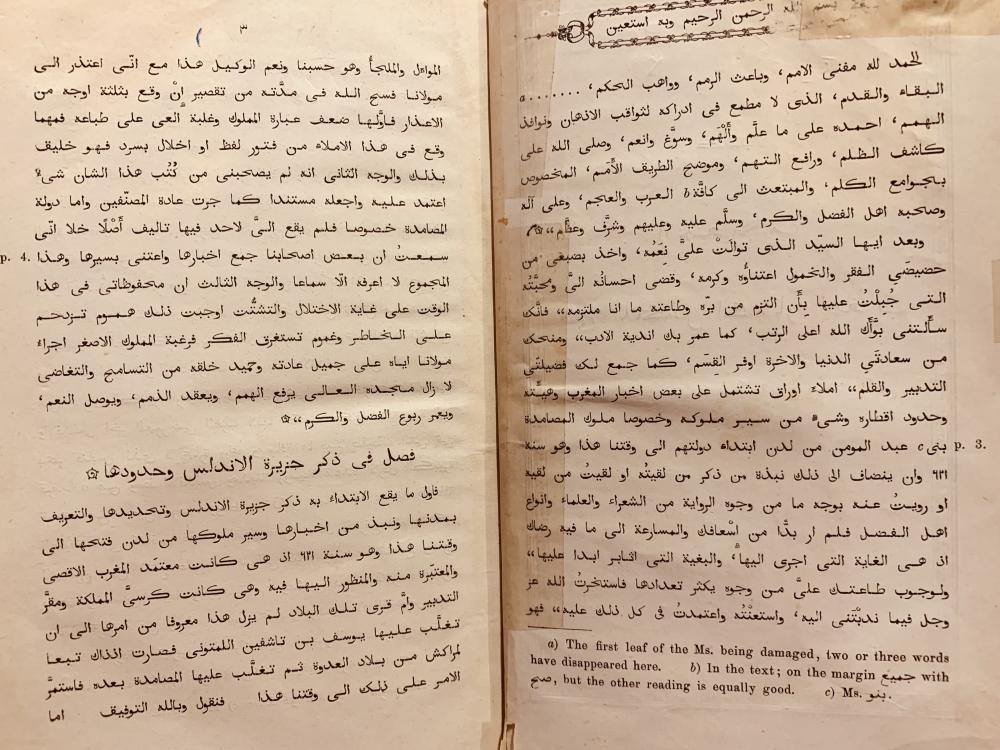 بسم الله الرحمن الرحيم وبه استعين
الحمد لله مفنى الامم، وباعث الرمم، وواهب الحكم، ........a
البقاء والقدم، الذى لا مطمع فى ادراكه لثواقب الاذهان ونوافذ
الهمم، احمده على ما علّم وألْهَم، وسوَّغ وانعم، وصلى الله على
كاشف الظلم، ورافع التهم، وموضح الطريف الأمَم، المخصوص
بجوامع الكلم، والمبتعث الى كافّة b العرب والعجم، وعلى آله
وصحبه اهل الفضل والكرم، وسلَّم عليه وعليهم وشرَّف وعظَّم،،۞
وبعد ايها السيّد الذى توالَتْ علىَّ نِعَمُه، واخذ بضبعَى من
حضيضَىِ الفقر والخمول اعتناؤه وكرمه، وقضى احسانُه الىَّ ومحبَّتُه
التى جُبِلْتُ عليها بأَن التزم من برّه وطاعته ما انا ملتزمه،، فانّك
سأَلتنى بوَّأك الله اعلى الرتب، كما عمر بك اندية الادب،، ومنحك
من سعادتَىِ الدنيا والاخرة اوفر القِسَم، كما جمع لك فضيلتَىِ
التدبير والقلم،، املاء اوراق تشتمل على بعض اخبار المغرب وهيئته
وحدود اقطاره وشىء من سير ملوكه وخصوصا ملوك المصامدة
بنى c عبد المومن من لدن ابتداء دولتهم الى وقتنا هذا وهو سنة p. 3.
٦٢١ وان ينضاف الى ذلك نبذة من ذكر من لقيتُه او لقيتُ من لقيه
او رويتُ عنه بوجه ما من وجوه الرواية من الشعراء والعلماء وانواع
اهل الفضل فلم ار بدًّا من اسْعافك والمسارعة الى ما فيه رضاك
اذ هى الغاية التى اجرى اليها، والبغية التى اثابر ابدا عليها،،
ولوجوب طاعتك علىَّ من وجوه يكثر تعدادها فاستخرتُ الله عز
وجل فيما ندبْتَنى اليه، واستعنْتُه واعتمدتُ فى كل ذلك عليه،، فهو
a) The first leaf of the Ms. being damaged, two or three words
have disappeared here. b) In the text; on the margin جميع with
صح, but the other reading is equally good. c) Ms. بنو.
٣
الموآل والملجأ وهو حسبنا ونعم الوكيل هذا مع انّى اعتذر الى
مولانا فسح الله فى مدّته من تقصير انْ وقع بثلثة اوجه من
الاعذار فاوّلها ضعف عبارة المملوك وغلبة العى على طباعه فمهما
وقع فى هذا الاملاء من فتور لفظ او اخلال بسرد فهو خليق
بذلك والوجه الثانى انه لم يصحبنى من كُتُب هذا الشان شىء
اعتمد عليه واجعله مستندا كما جرت عادة المصنّفين واما دولة
المصامدة خصوصا فلم يقع الىَّ لاحد فيها تاليف أَصْلًا خلا انّى
p. 4. سمعتُ ان بعض اصحابنا جمع اخبارها واعتنى بسيرها وهذا
المجموع لا اعرفه الّا سماعا والوجه الثالث ان محفوظاتى فى هذا
الوقت على غاية الاختلال والتشتُّت اوجبت ذلك هموم تزدحم
على الخاطر وغموم تستغرق الفكر فرغبة المملوك الاصغر اجراء
مولانا اياه على جميل عادته وحميد خلقه من التسامح والتغاضى
لا زال مجده العالى يرفع الهمم، ويعقد الذمم، ويوصل النعم،
ويعمر ربوع الفضل والكرم،،۞
فصل فى ذكر جزيرة الاندلس وحدودها۞
فاول ما يقع الابتداء به ذكر جزيرة الاندلس وتحديدها والتعريف
بمدنها ونبذ من اخبارها وسير ملوكها من لدن فتحها الى
وقتنا هذا وهو سنة ٦٢١ اذ هى كانت معتمَد المغرب الاقصى
والمعتبَرة منه والمنظور اليها فيه وهى كانت كرسىَّ المملكة ومقرَّ
التدبير وأُمَّ قرى تلك البلاد لم يزل هذا معروفا من امرها الى ان
تغلَّب عليها يوسف بن تاشفين اللمتونى فصارت اذذاك تبعا
لمراكش من بلاد العدوة ثم تغلَّب عليها المصامدة بعده فاستمرَّ
الامر على ذلك الى وقتنا هذا فنقول وبالله التوفيق اما